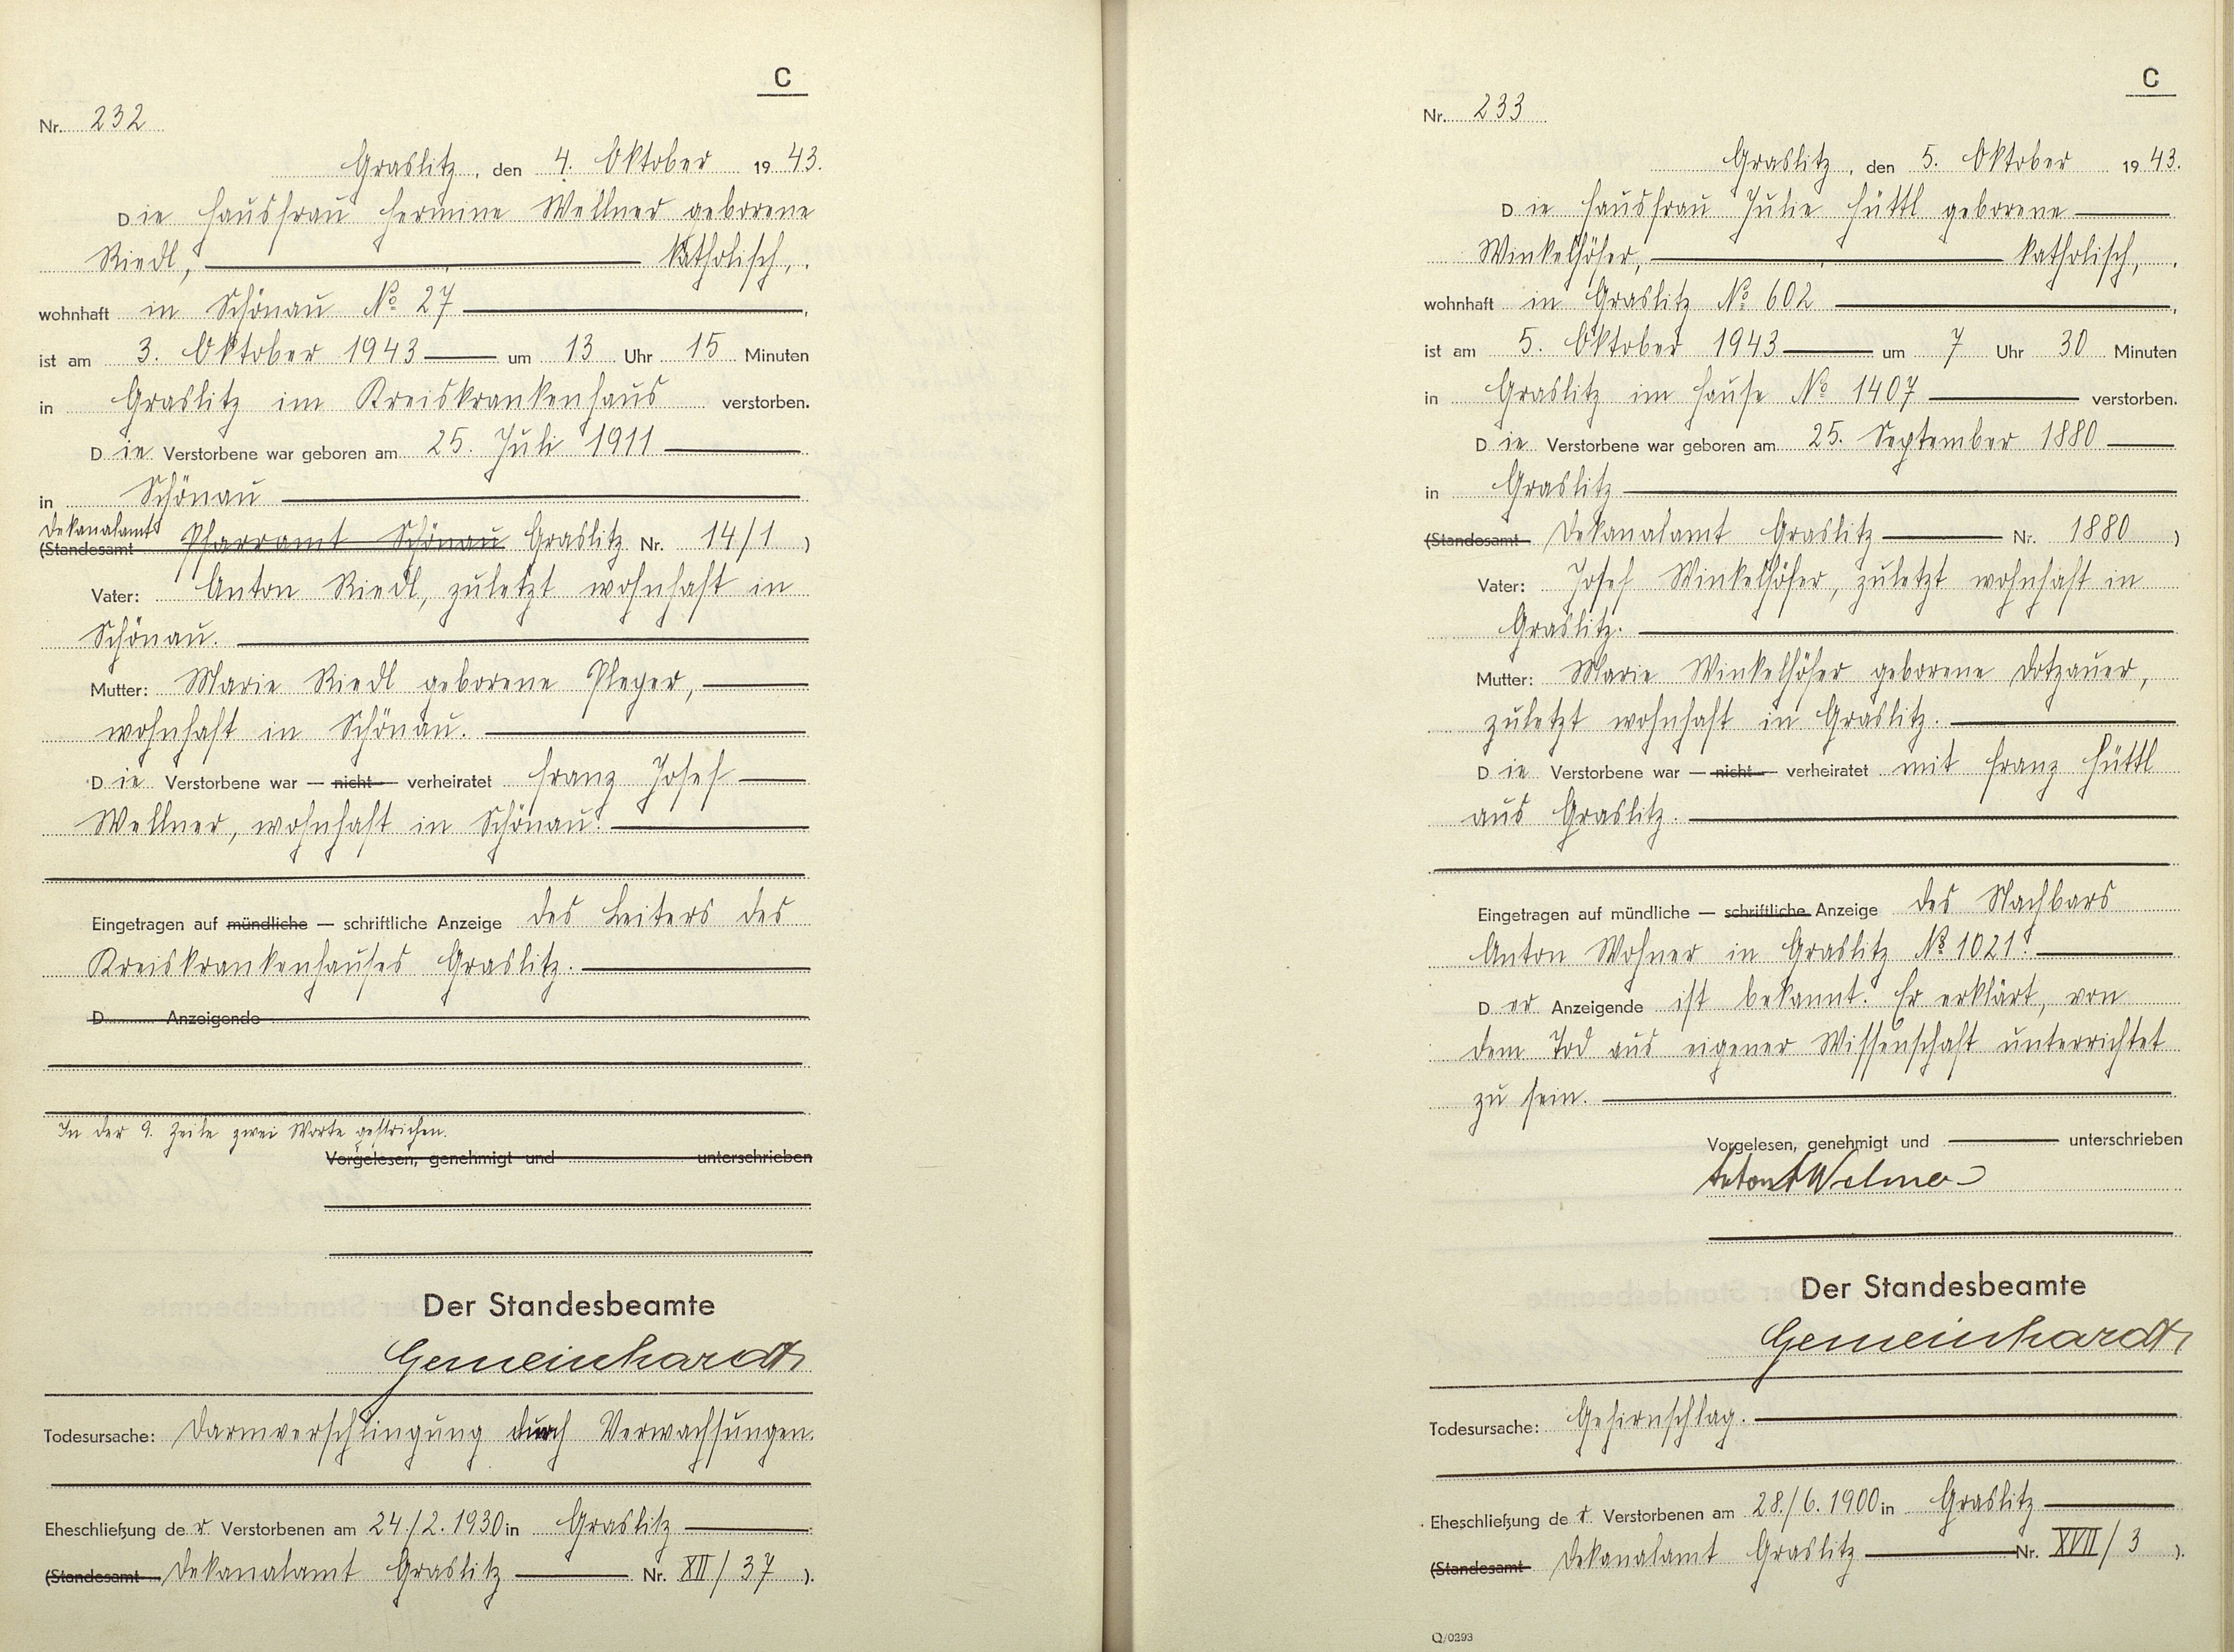 C
Nr. 232
Graslitz, den 4. Oktober 1943.
Die Hausfrau Hermine Wellner geborene
Riedl, katholisch,
wohnhaft in Schönau No 27,
ist am 3. Oktober 1943 um 13 Uhr 15 Minuten
in Graslitz im Kreiskrankenhaus verstorben.
Die Verstorbene war geboren am 25. Juli 1911
in Schönau
Dekanalamt
(Standesamt Pfarramt Schönau Graslitz Nr. 14/1)
Vater: Anton Riedl, zuletzt wohnhaft in
Schönau.
Mutter: Marie Riedl geborene Pleyer,
wohnhaft in Schönau.
Die Verstorbene war — nicht — verheiratet Franz Josef
Wellner, wohnhaft in Schönau.
Eingetragen auf mündliche — schriftliche Anzeige des Leiters des
Kreiskrankenhauses Graslitz.
D Anzeigende
In der 9. Zeile zwei Worte gestrichen.
Vorgelesen, genehmigt und unterschrieben
Der Standesbeamte
Gemeinhardt
Todesursache: Darmverschlingung durch Verwachsungen.
Eheschließung der Verstorbenen am 24./2. 1930 in Graslitz
(Standesamt Dekanalamt Graslitz Nr. XII/37).
C
Nr. 233
Graslitz, den 5. Oktober 1943.
Die Hausfrau Julie Hüttl geborene
Winkelhöfer, katholisch,
wohnhaft in Graslitz No 602,
ist am 5. Oktober 1943 um 7 Uhr 30 Minuten
in Graslitz im Hause No 1407 verstorben.
Die Verstorbene war geboren am 25. September 1880
in Graslitz
(Standesamt Dekanalamt Graslitz Nr. 1880)
Vater: Josef Winkelhöfer, zuletzt wohnhaft in
Graslitz.
Mutter: Marie Winkelhöfer geborene Dotzauer,
zuletzt wohnhaft in Graslitz.
Die Verstorbene war — nicht — verheiratet mit Franz Hüttl
aus Graslitz.
Eingetragen auf mündliche — schriftliche Anzeige des Nachbars
Anton Wohner in Graslitz No 1021.
Der Anzeigende ist bekannt. Er erklärt, von
dem Tod aus eigener Wissenschaft unterrichtet
zu sein.
Vorgelesen, genehmigt und unterschrieben
Anton
Der Standesbeamte
Gemeinhardt
Todesursache: Gehirnschlag.
Eheschließung der Verstorbenen am 28./6. 1900 in Graslitz
(Standesamt Dekanalamt Graslitz Nr. XVII/3).
Q/0393